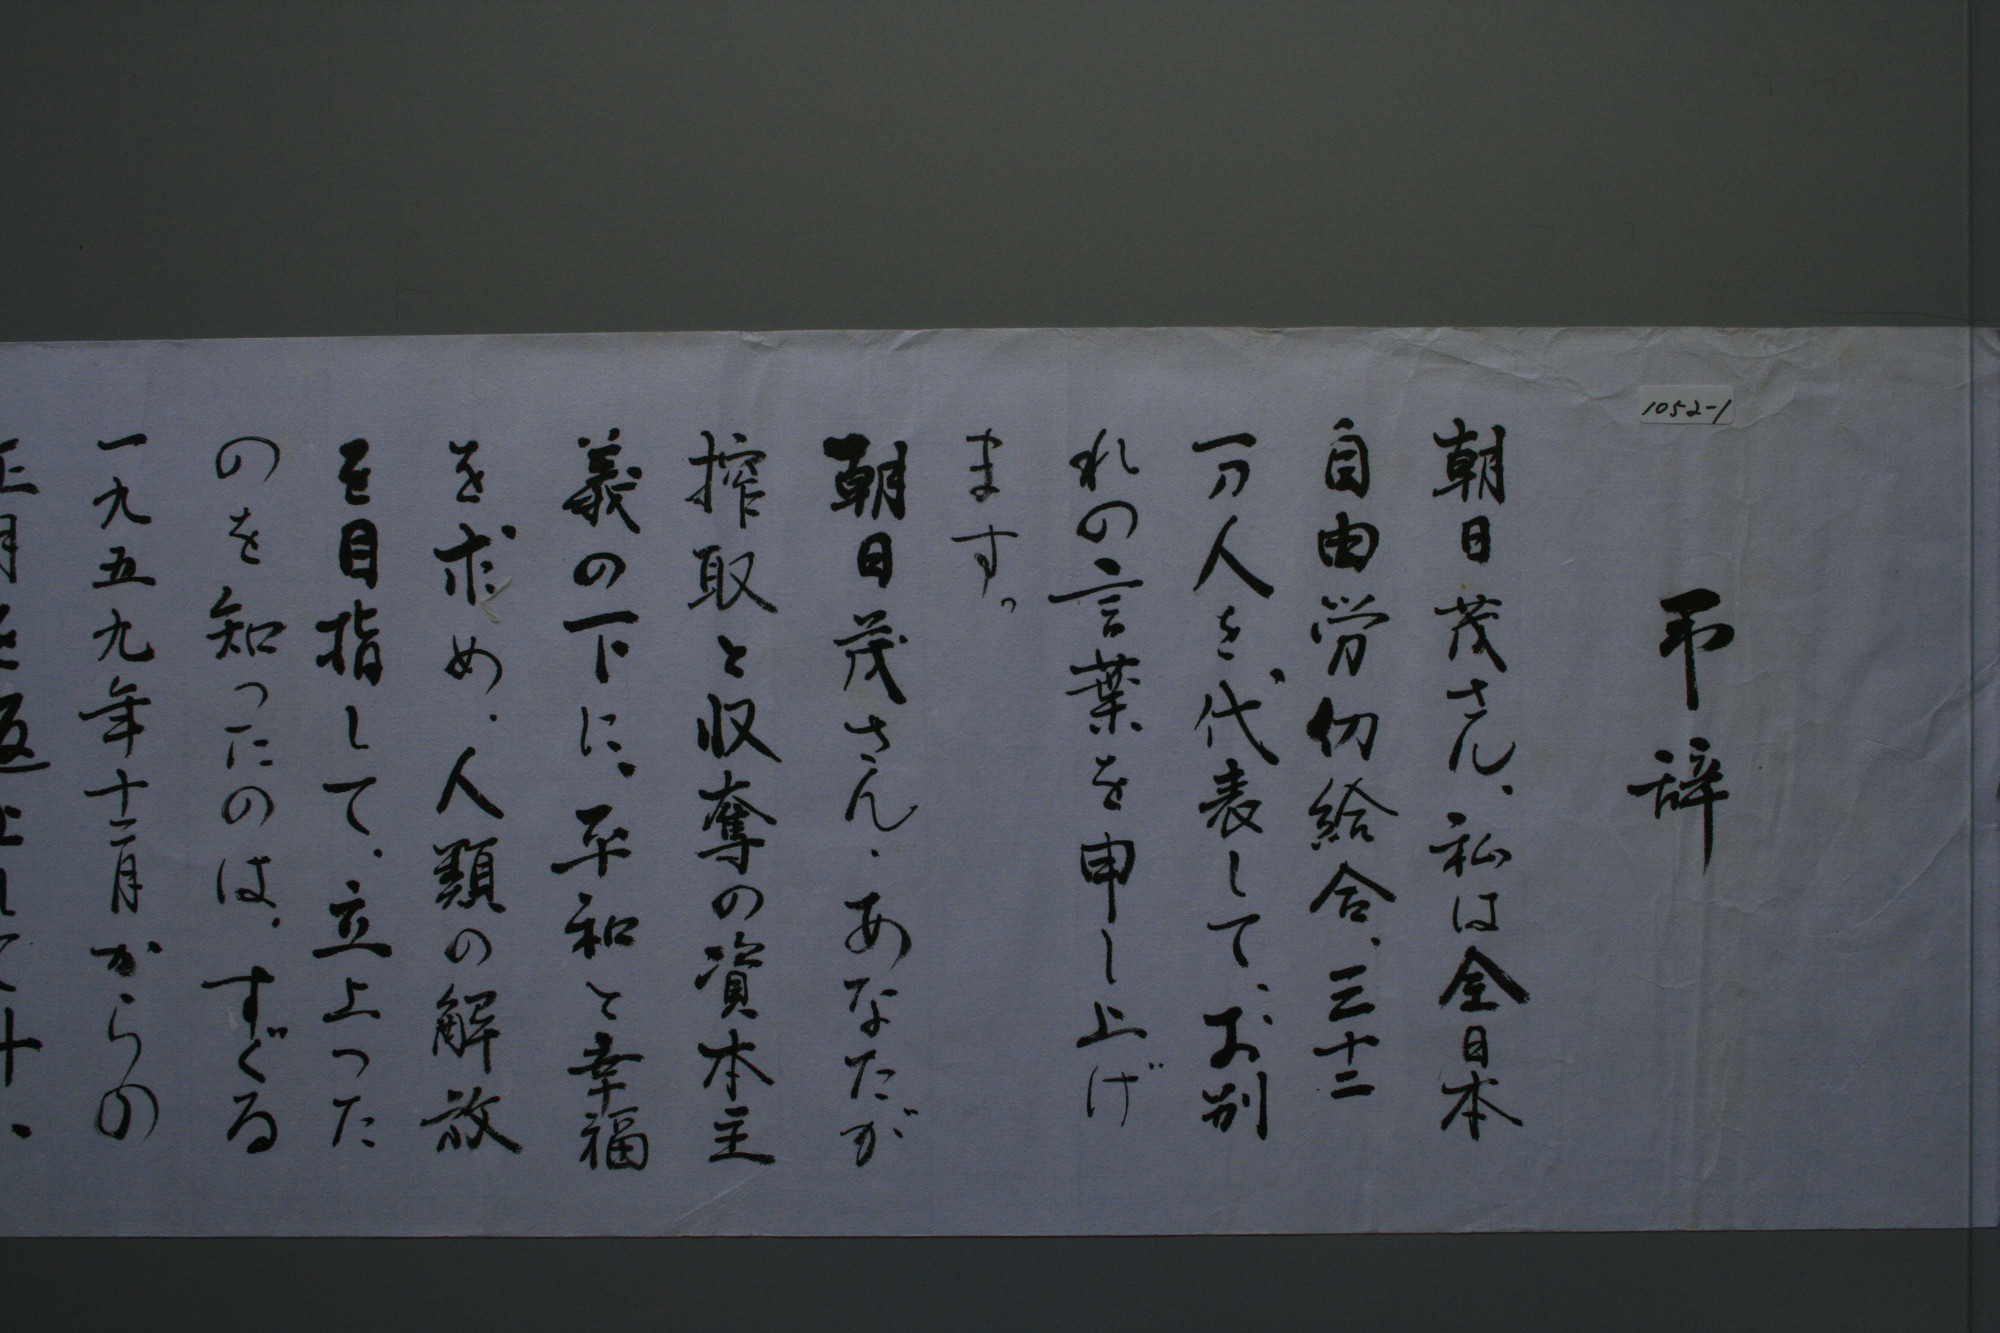 1052-1
弔辞
朝日茂さん、私は全日本
自由労仂給合、三十二
万人を代表して、お別
れの言葉を申し上げ
ます。
朝日茂さん、あなたが
搾取と収奪の資本主
義の下に、平和と幸福
を求め、人類の解放
を目指して、立上った
のを知ったのは、すぐる
一九五九年十二月からの